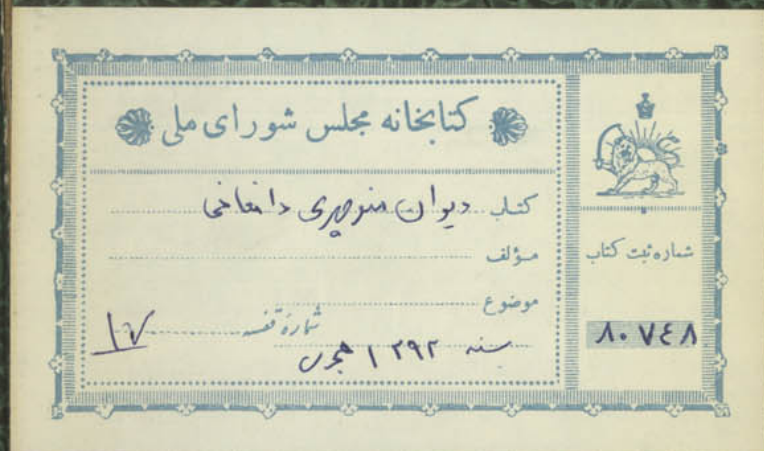 کتابخانه مجلس شورای ملی
کتاب دیوان منوچهری دامغانی
مؤلف
موضوع
شماره قفسه ۱۷
سنه ۱۲۹۲ هجری
شماره ثبت کتاب
۸۰۷۴۸